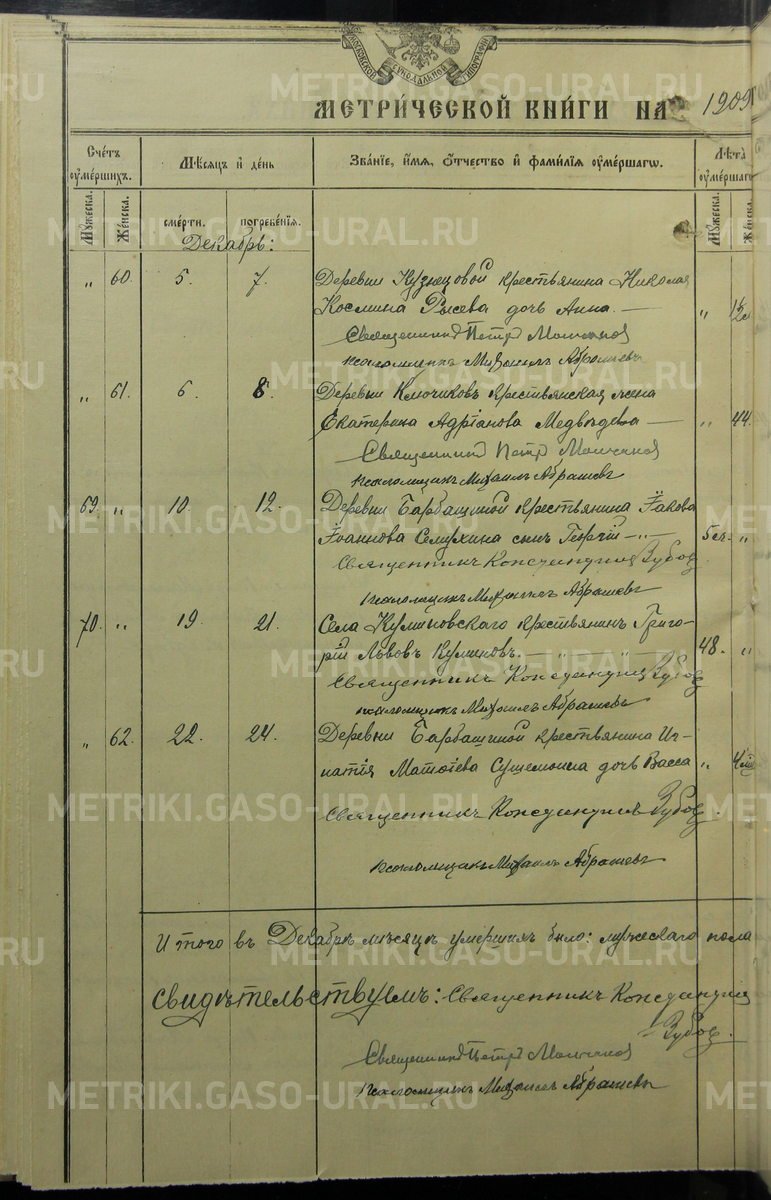 МОСКОВСКОЙ СѴНОДАЛЬНОЙ ТИПОГРАФИИ
МЕТРИ́ЧЕСКОЙ КНИ́ГИ НА 1909
Сче́тъ оуме́ршихъ. Мѣ́сяцъ и҆ де́нь Зва́нїе, и҆́мя, ѻ҆́тчество и҆ фамилїя оуме́ршагѡ. Лѣ́та оуме́ршагѡ
Мꙋжеска. Же́нска. сме́рти. погребе́нїя. Мꙋжеска. Же́нска.
Декабрь:
" 60. 5. 7. Деревни Кузнецовой крестьянина Николая
Космина Рысева дочь Анна. — "
Священникъ Петръ Молчанов
псаломщикъ Михаилъ Абрашевъ
" 61. 6. 8. Деревни Ключиковъ крестьянская жена
Екатерина Адріанова Медвѣдева — " 44.
Священникъ Петръ Молчанов
псаломщикъ Михаилъ Абрашевъ
69. " 10. 12. Деревни Барбашиной крестьянина Іакова
Іоаннова Семухина сынъ Георгій — " — "
Священникъ Константинъ Зубовъ
псаломщикъ Михаилъ Абрашевъ
70. " 19. 21. Села Куликовскаго крестьянинъ Григо-
рій Львовъ Куликовъ. — " — " 48. "
Священникъ Константинъ Зубовъ
псаломщикъ Михаилъ Абрашевъ
" 62. 22. 24. Деревни Барбашиной крестьянина Иг-
натія дочь Васса "
Священникъ Константинъ Зубовъ.
псаломщикъ Михаилъ Абрашевъ
Итого въ Декабрѣ мѣсяцѣ умершихъ было: мужескаго пола
Свидѣтельствуемъ: Священникъ Константинъ
Зубовъ.
Священникъ Петръ Молчанов
псаломщикъ Михаилъ Абрашевъ
METRIKI.GASO-URAL.RU